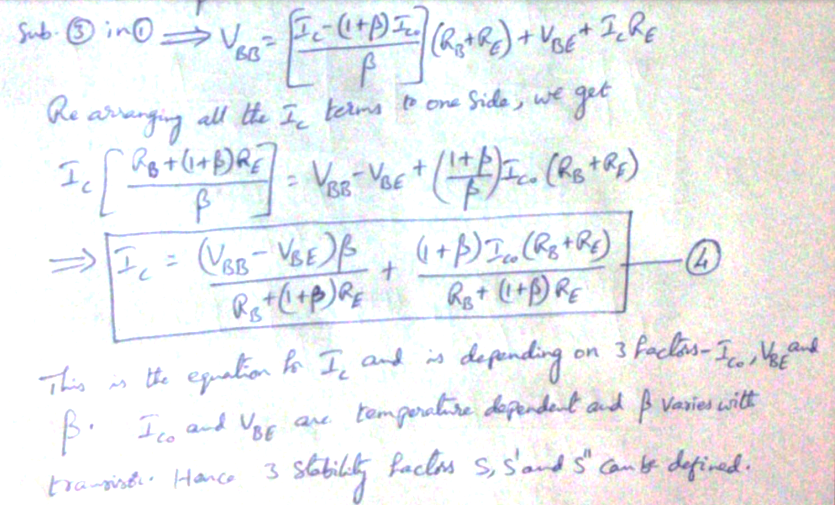 Sub. ③ in ① ⟹ V_BB = [I_C-(1+β)I_CO / β] (R_B+R_E) + V_BE + I_C R_E
Re arranging all the I_C terms to one side, we get
I_C [R_B+(1+β)R_E / β] = V_BB - V_BE + ((1+β)/β) I_CO (R_B+R_E)
⟹ I_C = (V_BB - V_BE)β / R_B+(1+β)R_E + (1+β) I_CO (R_B+R_E) / R_B + (1+β) R_E — ④
This is the equation for I_C and is depending on 3 factors - I_CO, V_BE and
β. I_CO and V_BE are temperature dependent and β varies with
transistor. Hence 3 stability factors S, S' and S" can be defined.